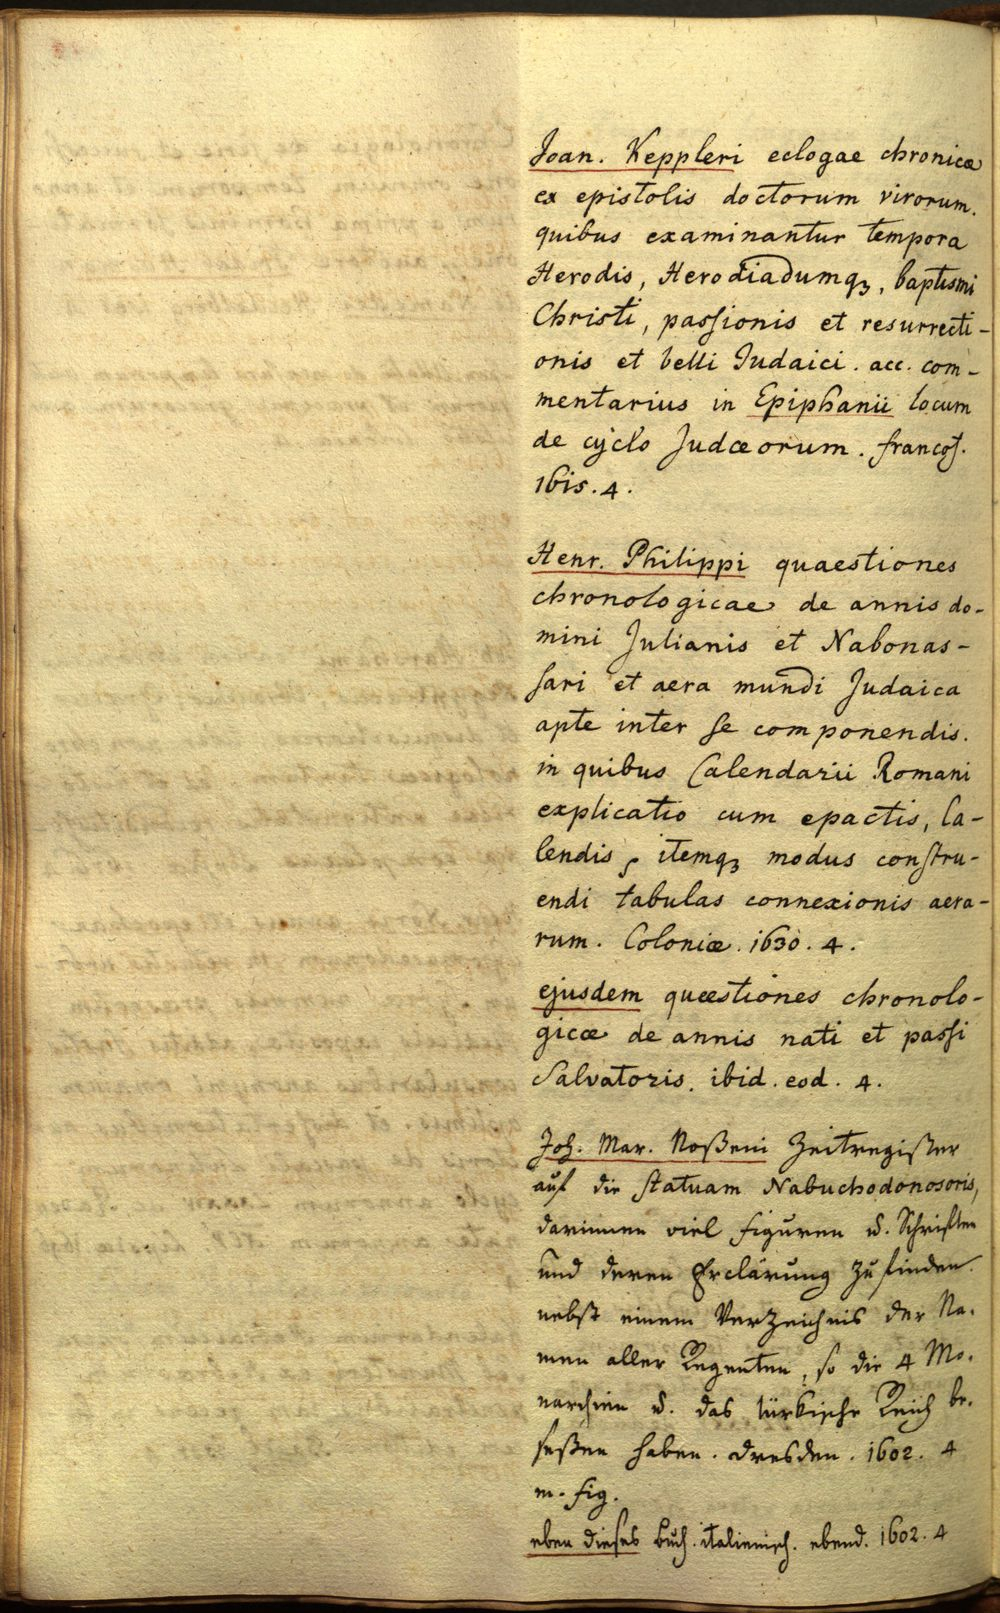 Joan. Keppleri eclogae chronicæ
ex epistolis doctorum virorum.
quibus examinantur tempora
Herodis, Herodiadumqꝫ, baptismi
Christi, paſsionis et resurrecti-
onis et belli Iudaici. acc. com-
mentarius in Epiphanii locum
de cyclo Judæorum. francof.
1615. 4.
Henr. Philippi quaestiones
chronologicae de annis do-
mini Julianis et Nabonas-
ſari et aera mundi Judaica
apte inter ſe componendis.
in quibus Calendarii Romani
explicatio cum epactis, Ca-
lendis, itemqꝫ modus conſtru-
endi tabulas connexionis aera-
rum. Coloniæ. 1630. 4.
ejusdem quæstiones chronolo-
gicæ de annis nati et paſsi
Salvatoris. ibid. eod. 4.
Joh. Mar. Noßeni Zeitregiſter
auf die ſtatuam Nabuchodonosoris,
darinnen viel figuren u. Schrifften
und deren Erclärung zu finden.
nebſt einem Verzeichnis der Na-
men aller Regenten, ſo die 4 Mo-
narchien u. das türkiſche Reich be-
ſeßen haben. Dresden. 1602. 4
m. fig.
eben dieſes Buch. italieniſch. ebend. 1602. 4